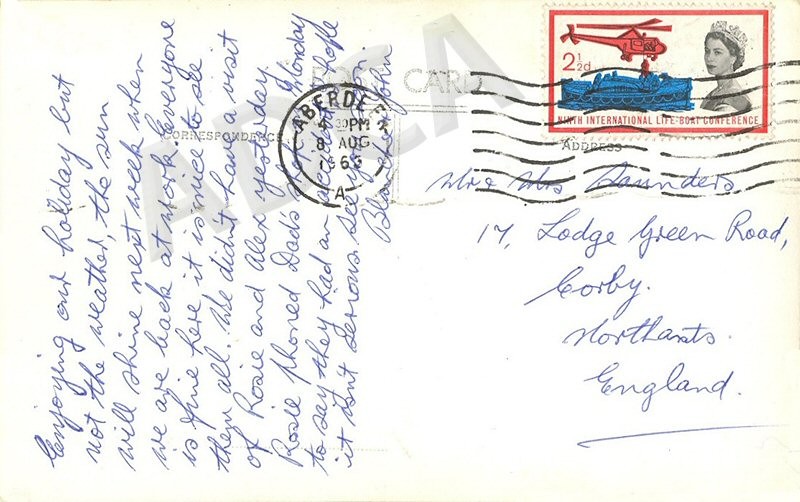 Enjoying our holiday but
not the weather, the sun
will shine next week when
we are back at work. Everyone
is fine here it is nice to see
them all. We didn't have a visit
of Rosie and Alex yesterday.
Rosie phoned Dad's shop Monday
to say they had an accident hope
it isn't serious. See you soon
John
CARD
CORRESPONDENCE
ADDRESS
ABERDEEN
30 PM
8 AUG
1963
A
2½d
NINTH INTERNATIONAL LIFE-BOAT CONFERENCE
Mr & Mrs Saunders,
17, Lodge Green Road,
Corby.
Northants.
England.